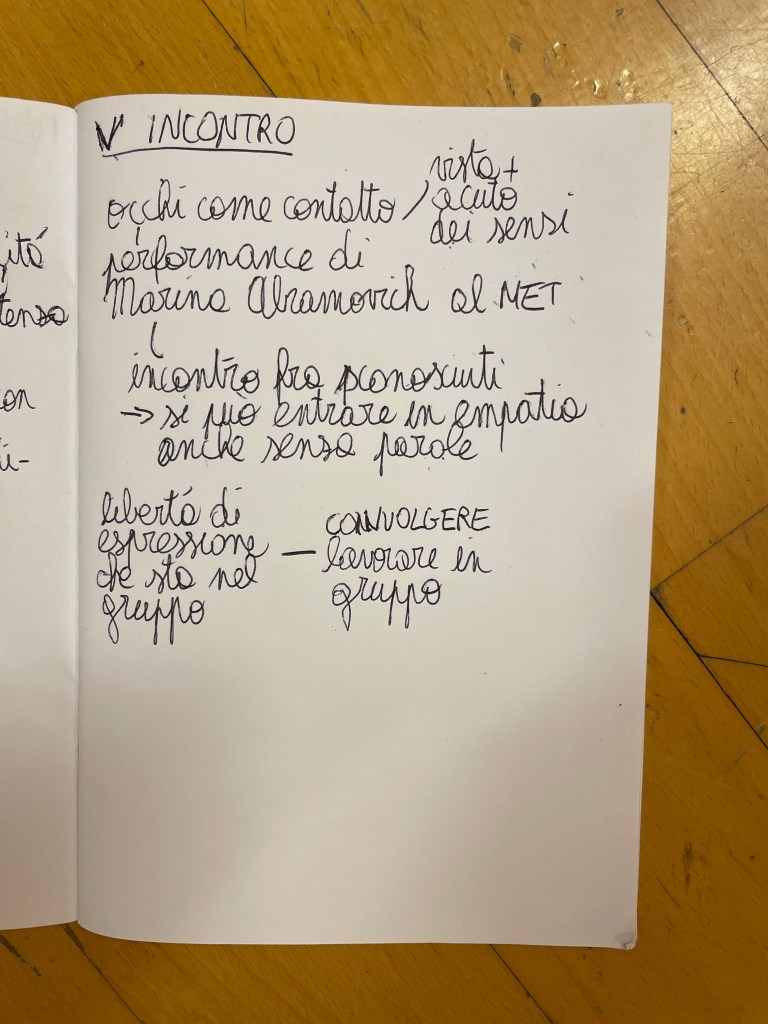 V° INCONTRO
occhi come contatto / vista +
acuto
dei sensi
performance di
Marina Abramovich al MET
incontro fra sconosciuti
→ si può entrare in empatia
anche senza parole
libertá di
espressione
che sta nel
gruppo
— COINVOLGERE
lavorare in
gruppo
itá
tenza
on
i-